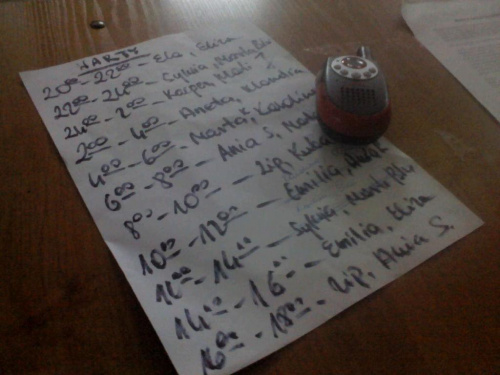 WARTY
20⁰⁰ - 22⁰⁰ - Ela, Eliza
22⁰⁰ - 24⁰⁰ - Sylwia,
24⁰⁰ - 2⁰⁰ - Kacper, Mati
2⁰⁰ - 4⁰⁰ - Aneta, Klaudia
4⁰⁰ - 6⁰⁰ - Marta K, Karolina
6⁰⁰ - 8⁰⁰ - Ania S,
8⁰⁰ - 10⁰⁰ - Zip, Kuba
10⁰⁰ - 12⁰⁰ - Emilia,
12⁰⁰ - 14⁰⁰ - Sylwia,
14⁰⁰ - 16⁰⁰ - Emilia, Eliza
16⁰⁰ - 18⁰⁰ - Zip, Ania S.